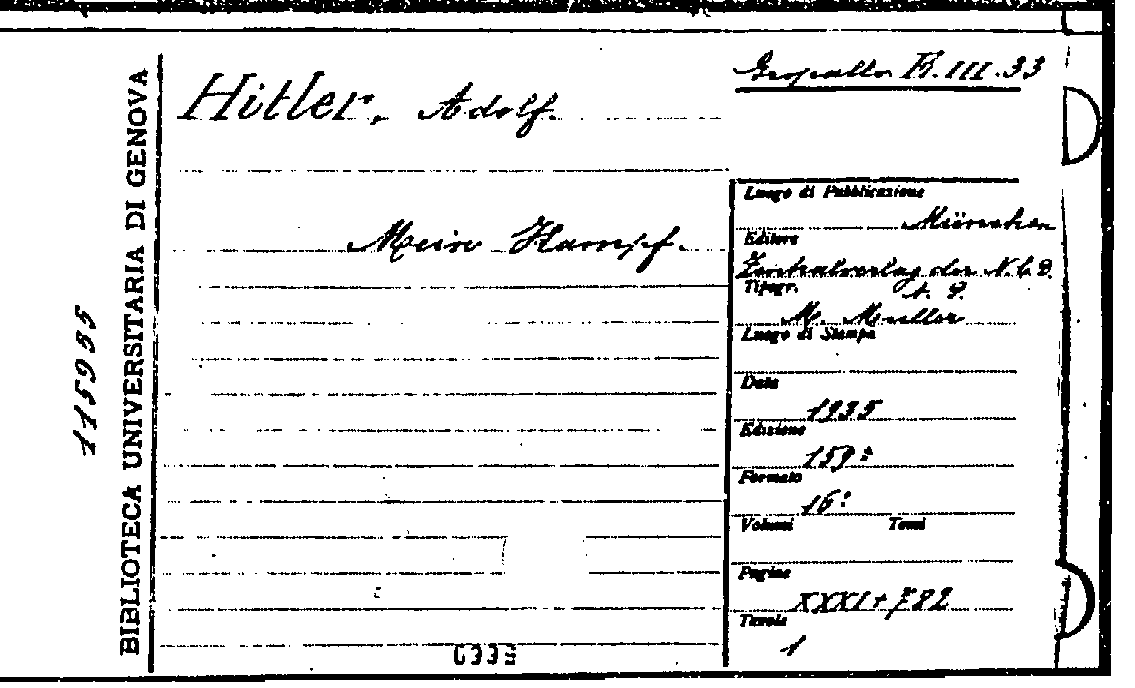 Hitler, Adolf.
Mein Kampf.
BIBLIOTECA UNIVERSITARIA DI GENOVA
115935
III. 33
Luogo di Pubblicazione
München
Editore
Zentralverlag der N. S. D.
A. P.
Tipogr.
M. Müller
Luogo di Stampa
Data
1935
Edizione
159ª
Formato
16º
Volumi Tomi
Pagine
XXXI + 782
Tavole
1